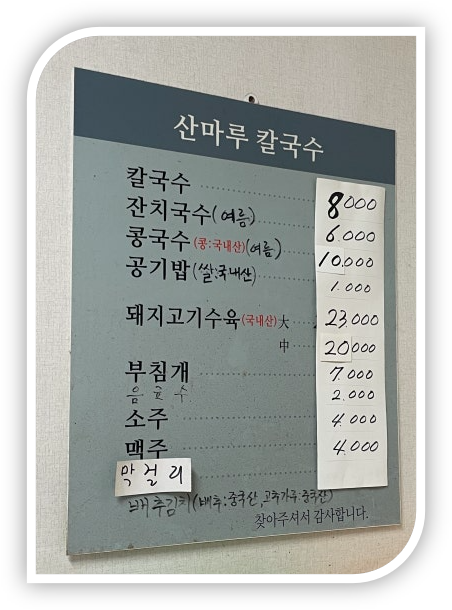 산마루 칼국수
칼국수 8000
잔치국수(여름) 6.000
콩국수(콩:국내산)(여름) 10,000
공기밥(쌀:국내산) 1.000
돼지고기수육(국내산) 大 23,000
中 20000
부침개 7.000
음료수 2.000
소주 4.000
맥주 4.000
막걸리
배추김치(배추:중국산,고추가루:중국산)
찾아주셔서 감사합니다.